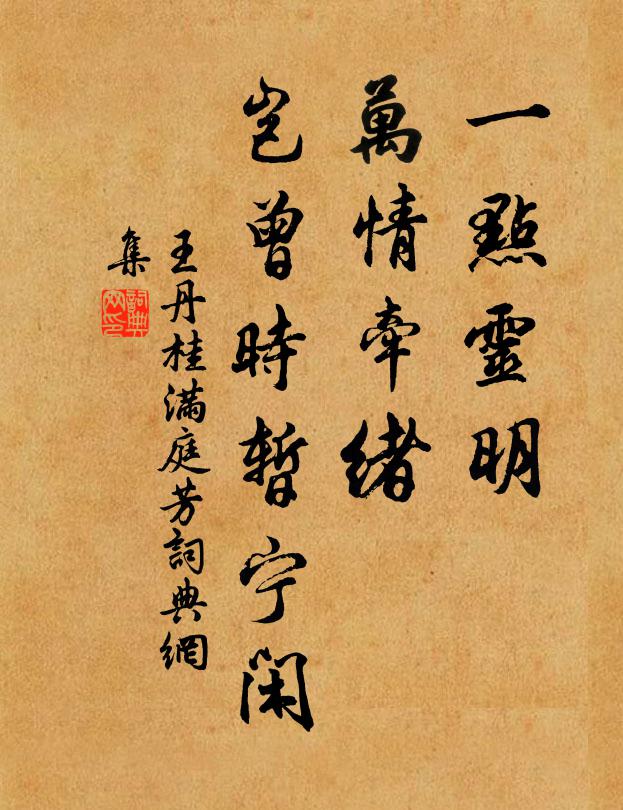 一點靈明
萬情牽緒
豈曾時暫宁閑
王丹桂滿庭芳詞典網
集
詞典
网印